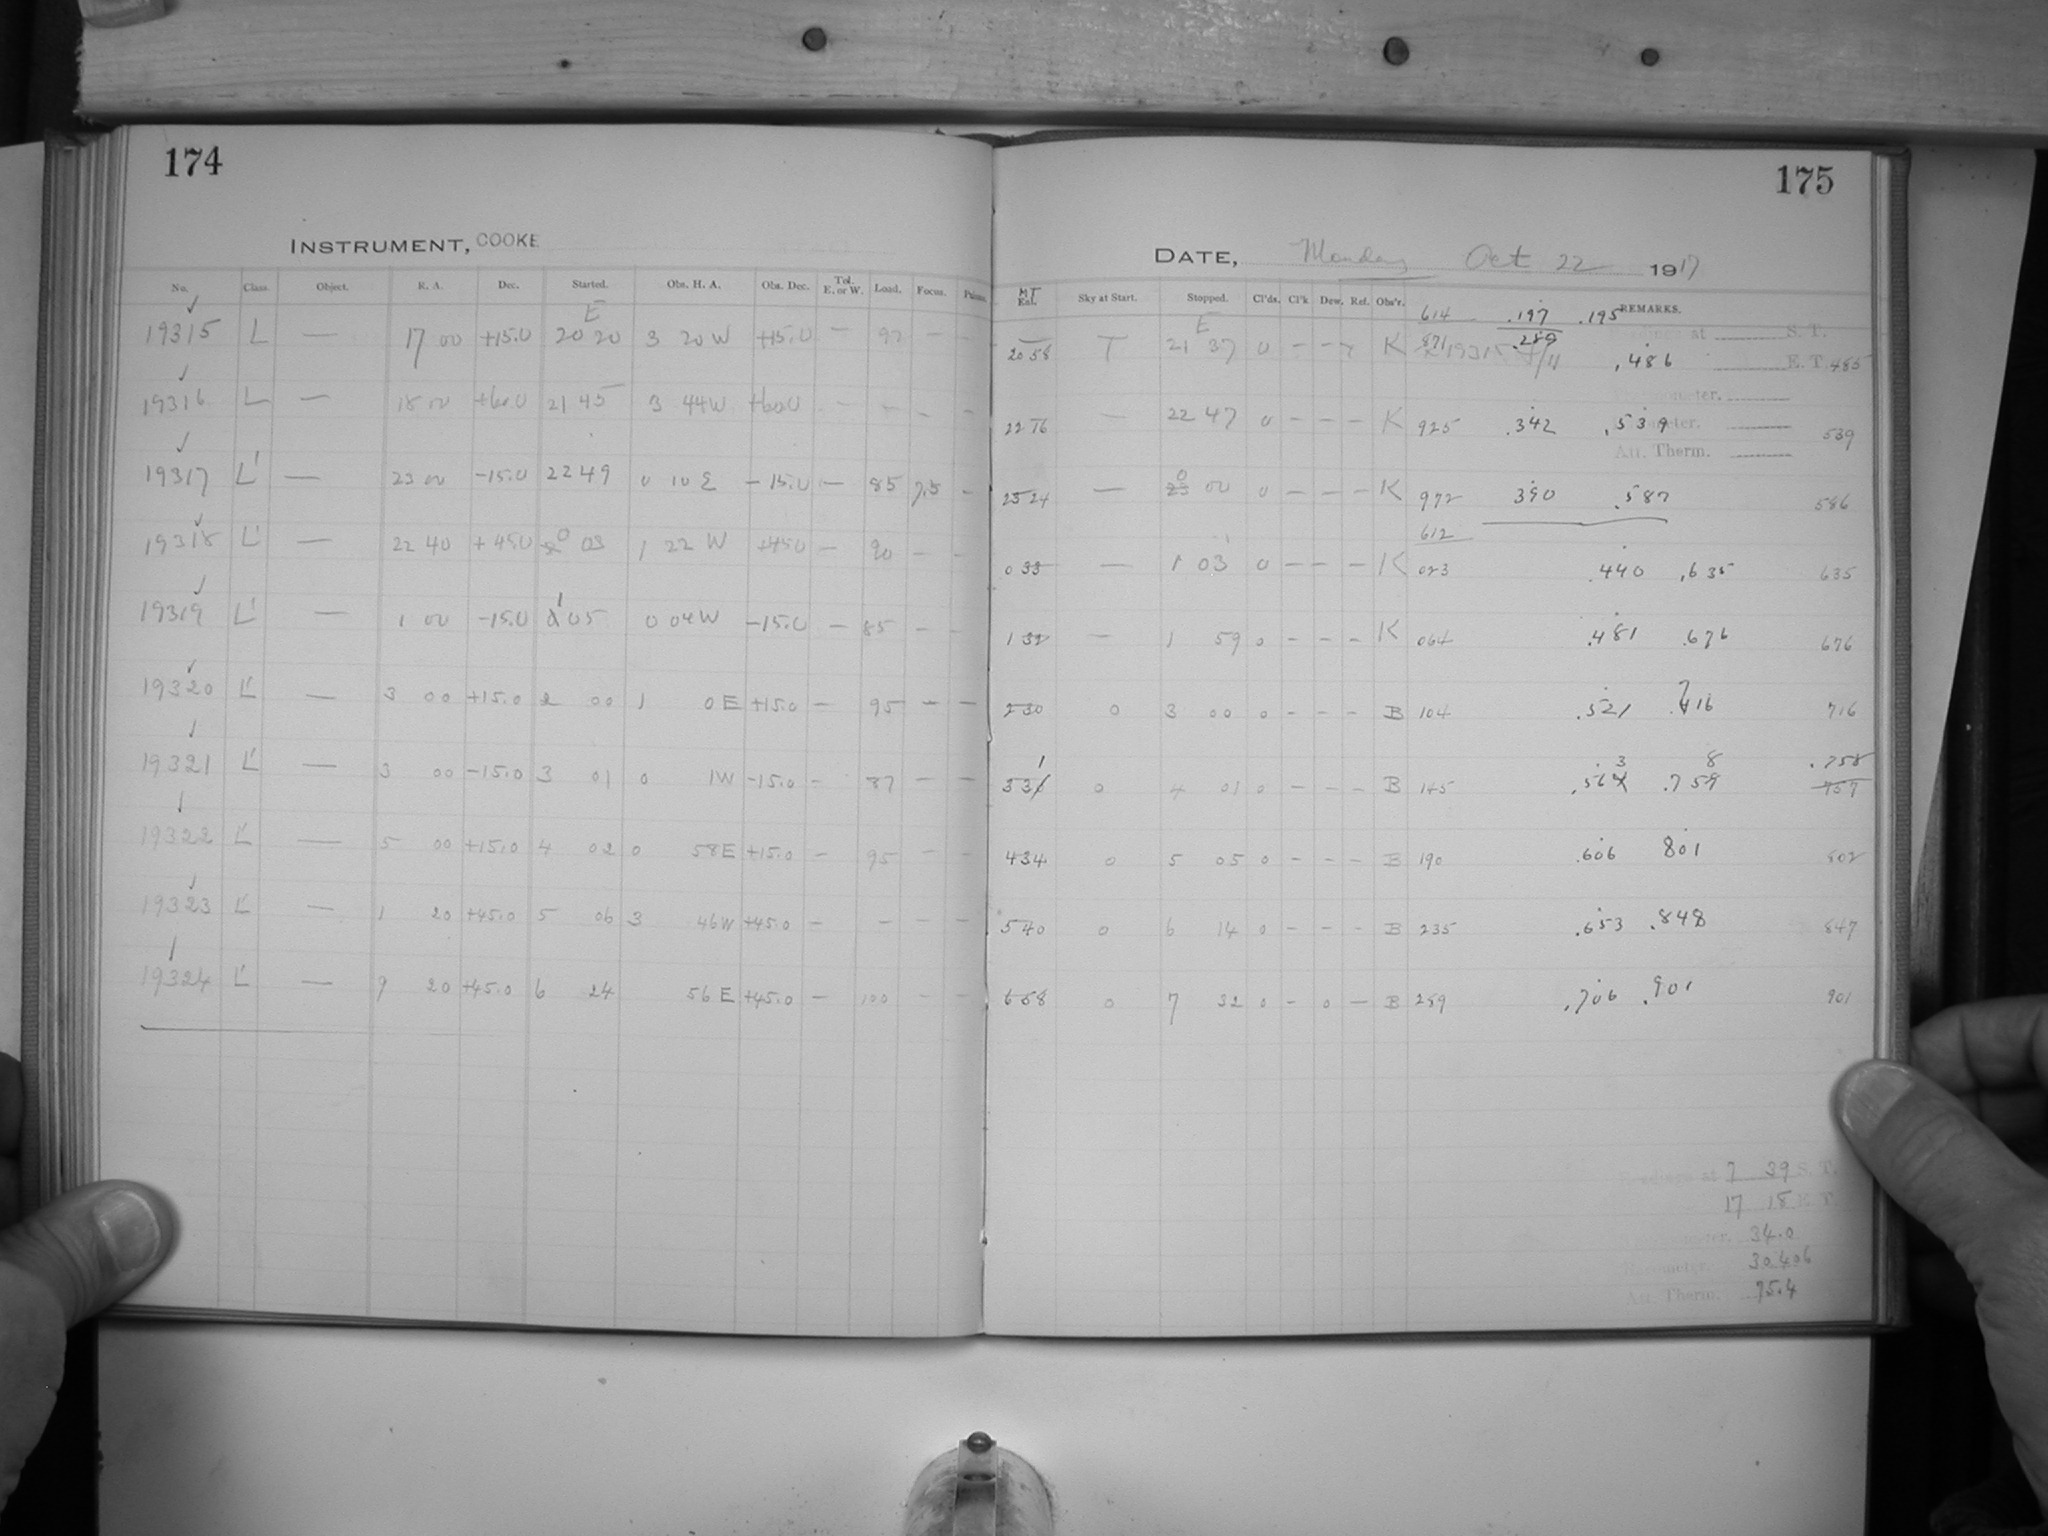 174
INSTRUMENT, COOKE
No. Class. Object. R. A. Dec. Started. Obs. H. A. Obs. Dec. Tel. E. or W. Load. Focus.
E
19315 L — 17 00 +15.0 20 20 3 20 W +15.0 — 92 — —
19316 L — 18 00 +60.0 21 45 3 44 W +60.0 — — — —
19317 L' — 23 00 -15.0 22 49 0 10 E -15.0 — 85 7.5 —
19318 L' — 22 40 +45.0 0 03 1 22 W +45.0 — 90 — —
19319 L' — 1 00 -15.0 1 05 0 04 W -15.0 — 85 — —
19320 L' — 3 00 +15.0 2 00 1 0 E +15.0 — 95 — —
19321 L' — 3 00 -15.0 3 01 0 1 W -15.0 — 87 — —
19322 L' — 5 00 +15.0 4 02 0 58 E +15.0 — 95 — —
19323 L' — 1 20 +45.0 5 06 3 46 W +45.0 — — — —
19324 L' — 9 20 +45.0 6 24 56 E +45.0 — 100 — —
175
DATE, Monday Oct 22 1917
MT
Sky at Start. Stopped. Cl'ds. Cl'k Dew. Ref. Obs'r. REMARKS.
E 614 .197 .195
S. T.
20 58 T 21 37 0 — — K 871 .289 .486 E. T. 485
22 16 — 22 47 0 — — — K 925 .342 .539 539
Att. Therm.
23 24 — 0 00 0 — — — K 972 390 .587 586
612
0 33 — 1 03 0 — — — K 023 .440 .635 635
1 32 — 1 59 0 — — — K 064 .481 .676 676
2 30 0 3 00 0 — — — B 104 .521 .716 716
3 31 0 4 01 0 — — — B 145 .563 .758 .758
4 34 0 5 05 0 — — — B 190 .606 801 802
5 40 0 6 14 0 — — — B 235 .653 .848 847
6 58 0 7 32 0 — 0 — B 289 .706 .901 901
Readings at 7 39 S. T.
17 18 E. T.
34.0
Barometer. 30.406
Att. Therm. 75.4